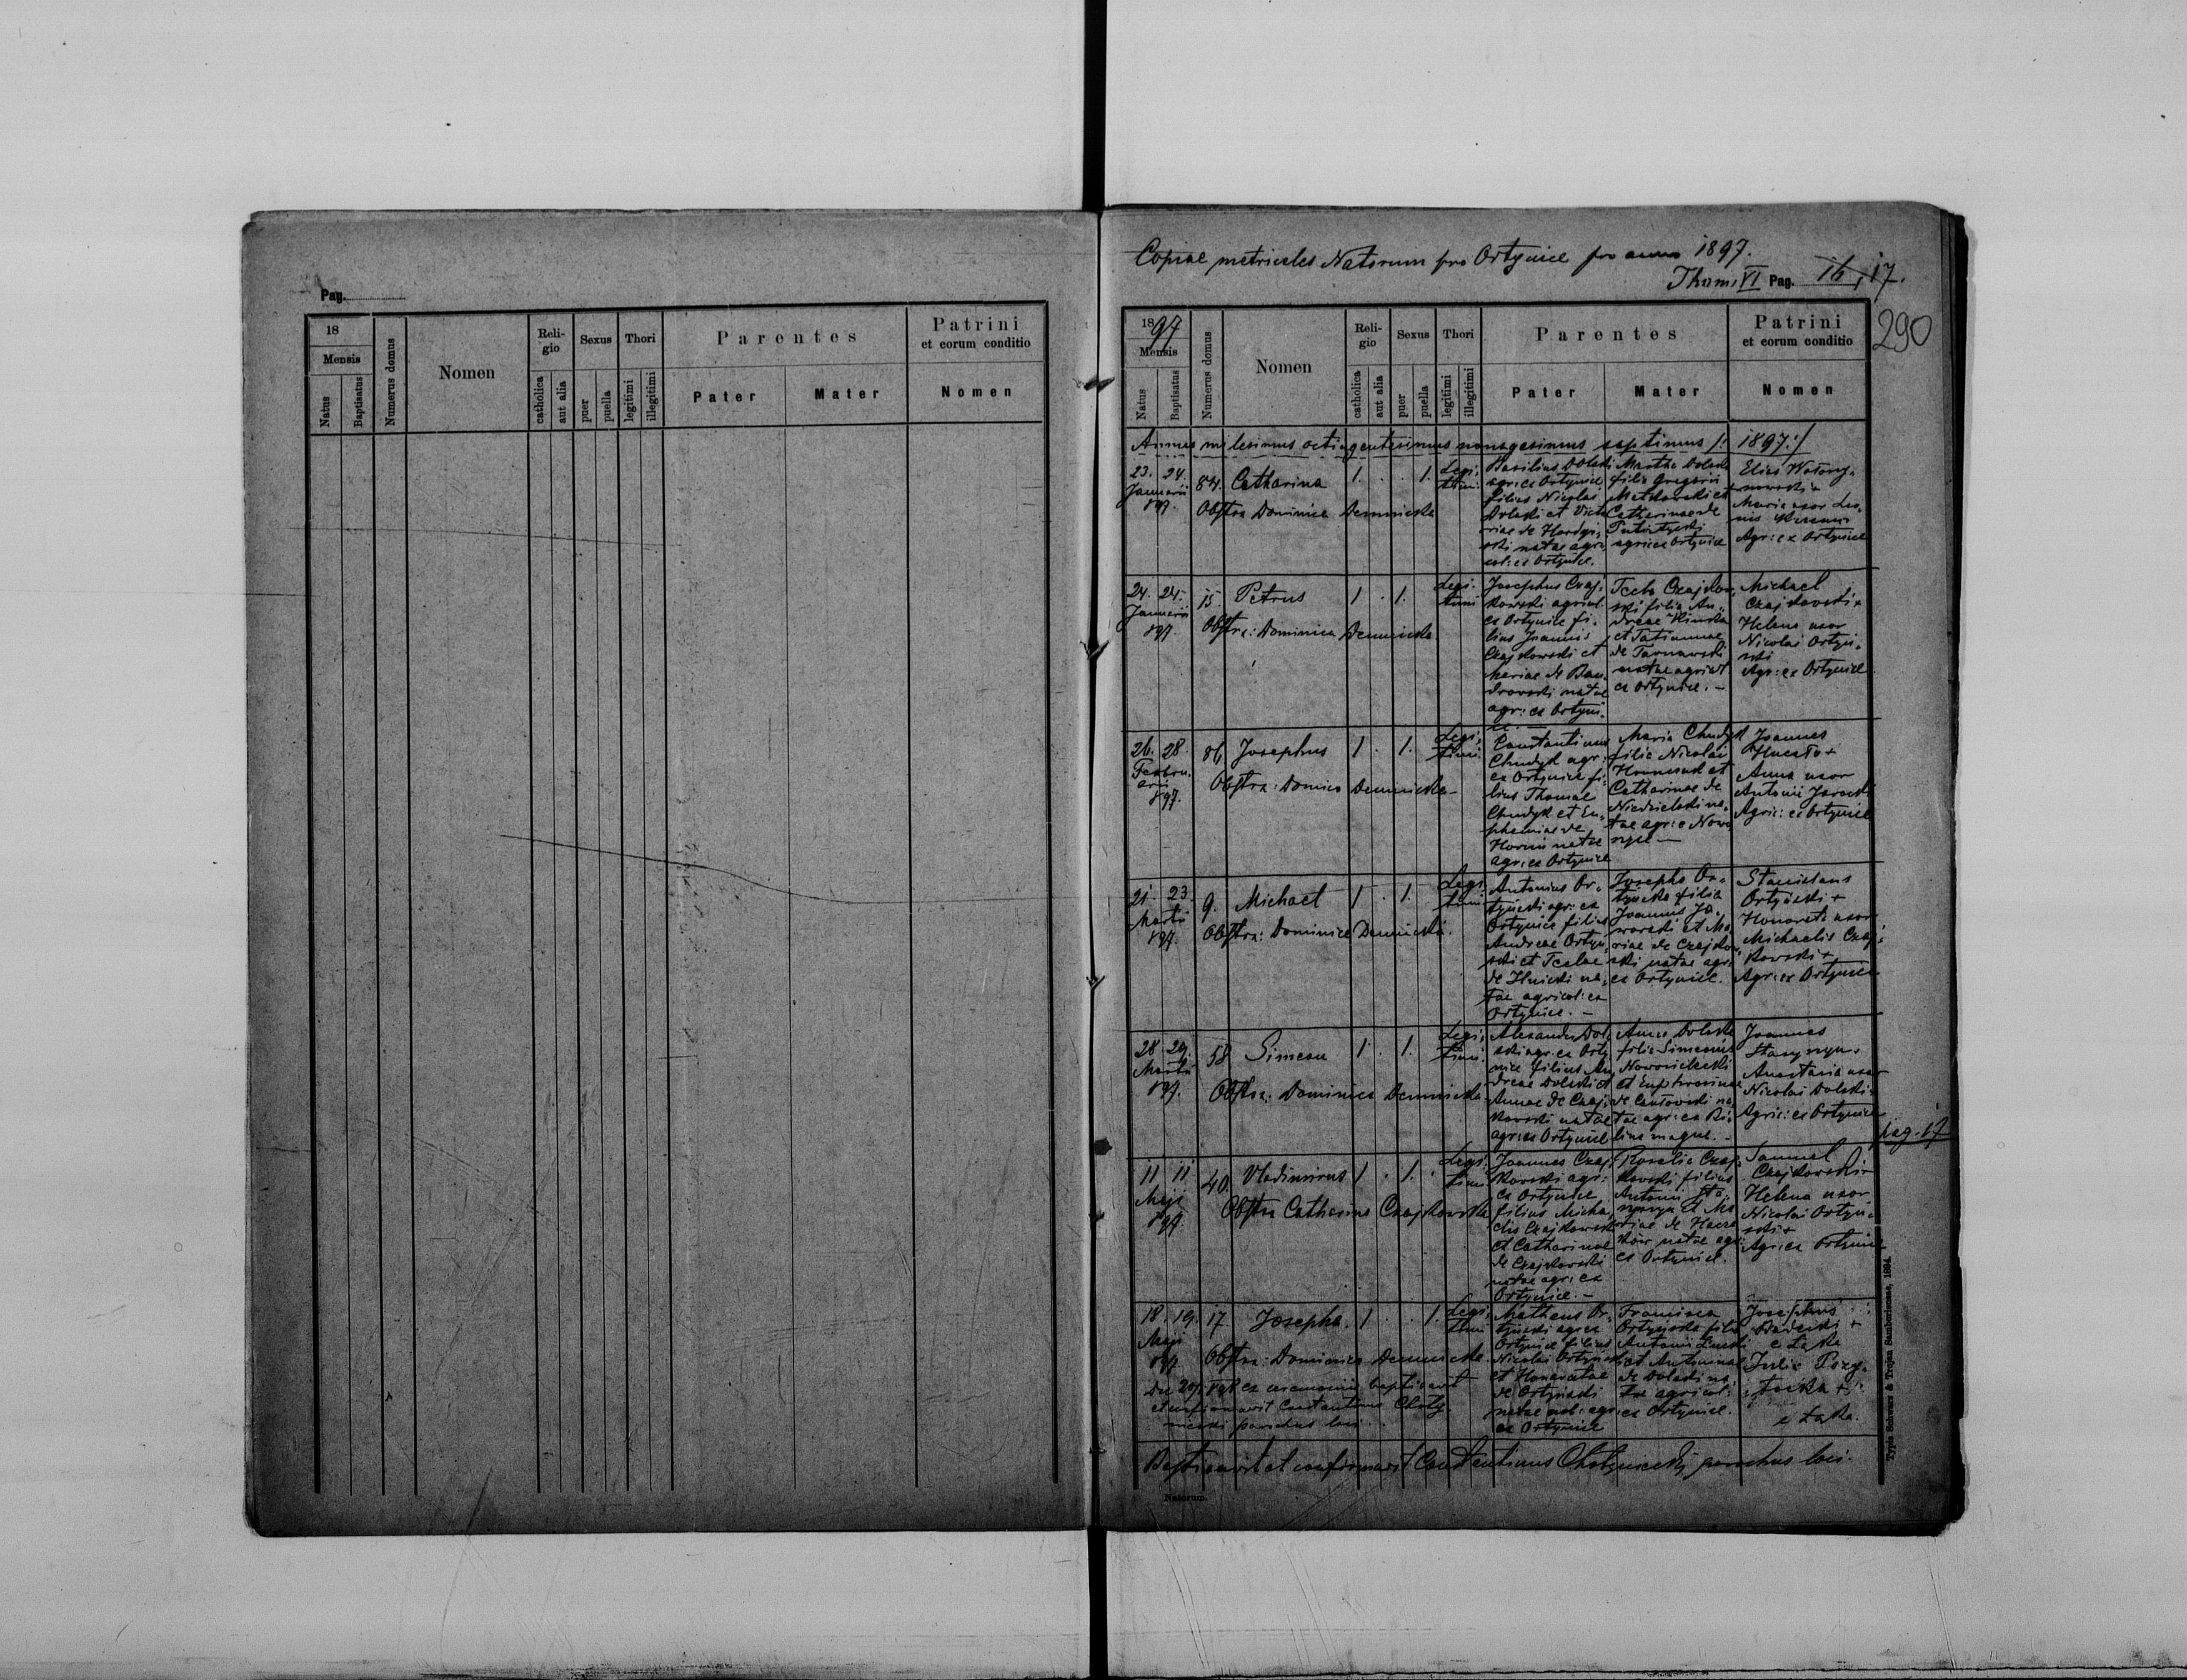 Pag.
18
Mensis
Natus
Baptisatus
Numerus domus
Nomen
Reli-
gio
catholica
aut alia
Sexus
puer
puella
Thori
legitimi
illegitimi
Parentes
Pater
Mater
Patrini
et eorum conditio
Nomen
Copiae metricales Natorum pro Ortynice pro anno 1897.
Thom. VI Pag. 16, 17.
290
1897
Mensis
Natus
Baptisatus
Numerus domus
Nomen
Reli-
gio
catholica
aut alia
Sexus
puer
puella
Thori
legitimi
illegitimi
Parentes
Pater
Mater
Patrini
et eorum conditio
Nomen
Annus milesimus octingentesimus nonagesimus septimus /: 1897 :/
23. 24.
Januarii
897.
84. Catharina 1. . . 1. Legi-
timi
Obstra Dominica Demnicka
Basilius Dolski
agr: ex Ortynice
filius Nicolai
Dolski et Victo
riae de Hordyń-
ski natae agri
col: ex Ortynice.
Martha Dolska
filia Gregorii
et
Catharinae de
agric ex Ortynice
Elias
Maria uxor Leo-
nis
Agr: ex Ortynice
24. 24.
Januarii
897.
15. Petrus 1 . 1. Legi-
timi
Obstra: Dominica Demnicka
Josephus Czaj-
kowski agricol
ex Ortynice fi-
lius Joannis
Czajkowski et
Mariae de Ban-
drowski natae
agr: ex Ortyni-
ce.
Tecla Czajkow-
ski filia An-
dreae
et Tatiannae
de Tarnawski
natae agricol
ex Ortynice. -
Michael
Czajkowski +
Helena uxor
Nicolai Ortyń-
ski
Agr: ex Ortynice
26. 28.
Febru-
arii
897.
86 Josephus 1 . 1. Legi-
timi
Obstra: Domica Demnicka -
Constantinus
Chudyk agr:
ex Ortynice fi-
lius Thomae
Chudyk et Eu-
phemiae de
natae
agr: ex Ortynice
Maria Chudyk
filia Nicolai
et
Catharinae de
Niedzielski na-
tae agr: e Nowo
Joannes
+
Anna uxor
Antonii
Agric: ex Ortynice
21. 23.
Martii
897.
9. Michael 1 . 1. Legi
timi
Obstra: Dominica Demnicka.
Antonius Or-
tyński agr: ex
Ortynice filius
Andreae Ortyń-
ski et Teclae
de Ilnicki na-
tae agricol: ex
Ortynice. -
Josepha Or-
tyńska filia
Joannis Ja-
worski et Ma
riae de Czajkow-
ski natae agr:
ex Ortynice.
Stanislaus
Ortyński +
Honorata uxor
Michaelis Czaj-
kowski +
Agr: ex Ortynice
28. 29.
Martii
897.
58 Simeon 1 . 1. Legi-
timi.
Obstra: Dominica Demnicka
Alexander Dol-
ski agr: ex Orty
nice filius An
dreae Dolski et
Annae de Czaj-
kowski natae
agr: ex Ortynice
Anna Dolska
filia Simeonis
Nowosielecki
et Euphrosinae
de na
tae agr: ex
magne. -
Joannes
Anastasia uxor
Nicolai Dolski +
Agric: ex Ortynice
pag. 17
11 11
Maji
897.
40. Vladimirus 1 . 1. Legi-
timi
Obstra Catharina Czajkowska
Joannes Czaj-
kowski agr:
ex Ortynice
filius Micha-
elis Czajkowski
et Catharinae
de Czajkowski
natae agr: ex
Ortynice. -
Rosalia Czaj
kowski filia
Antonii
et Ma
riae de
natae agr:
ex Ortynice.
Samuel
Czajkowski +
Helena uxor
Nicolai Ortyń-
ski +
Agr: ex Ortynice
18. 19.
Maji
897
17. Josepha. 1 . . 1. Legi-
timi
Obstra: Dominica Demnicka.
Matheus Or-
tyński agr: ex
Ortynice filius
Nicolai Ortyński
et Honoratae
de Ortyński
natae
ex Ortynice
Francisca
Ortyńska filia
Antonii
et Antoninae
de Dolski na-
tae agricol:
ex Ortynice.
Josephus
+
e Łąka
Julia
+
e Łąka.
ex ceremonia baptisavit
et confirmavit Constantinus
parochus loci.
Baptisavit et confirmavit Constantinus parochus loci.
Natorum.
Typis Schwarz & Trojan Samboriense, 1894.